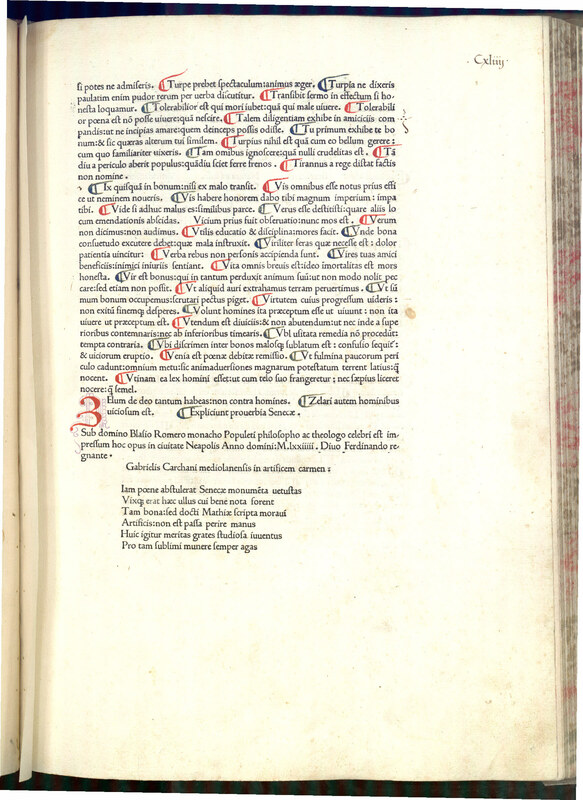 · Cxliiij ·
si potes ne admiseris. Turpe prebet spectaculum:animus æger. Turpia ne dixeris
paulatim enim pudor rerum per uerba discutitur. Transibit sermo in effectum si ho
nesta loquamur. Tolerabilior est qui mori iubet:quā qui male uiuere. Tolerabili
or pœna est nō posse uiuere:quā nescire. Talem diligentiam exhibe in amiciciis com
pandis:ut ne incipias amare:quem deinceps possis odisse. Tu primum exhibe te bo
num:& sic quæras alterum tui similem. Turpius nihil est quā cum eo bellum gerere:
cum quo familiariter uixeris. Tam omibus ignoscere:quā nulli crudelitas est. Tā
diu a periculo aberit populus:quādiu sciet ferre frenos. Tirannus a rege distat factis
non nomine.
Ix quisquā in bonum:nisi ex malo transit. Vis omnibus esse notus prius effi
ce ut neminem noueris. Vis habere honorem dabo tibi magnum imperium: impa
tibi. Vide si adhuc malus es:similibus parce. Verus esse destitisti:quare aliis lo
cum emendationis abscidas. Vicium prius fuit obseruatio:nunc mos est. Verum
non dicimus:non audimus. Vtilis educatio & disciplina:mores facit. Vnde bona
consuetudo excutere debet:quæ mala instruxit. Viriliter feras quæ necesse est: dolor
patientia uincitur. Verba rebus non personis accipienda sunt. Vires tuas amici
beneficiis:inimici iniuriis sentiant. Vita omnis breuis est:ideo imortalitas est mors
honesta. Vir est bonus:qui in tantum perduxit animum suū:ut non modo nolit pec
care:sed etiam non possit. Vt aliquid auri extrahamus terram peruertimus. Vt sū
mum bonum occupemus:scrutari pectus piget. Virtutem cuius progressum uideris:
non exitū finemq; desperes. Volunt homines ita præceptum esse ut uiuunt: non ita
uiuere ut præceptum est. Vtendum est diuiciis:& non abutendum:ut nec inde a supe
rioribus contemnaris:nec ab inferioribus timearis. Vbi usitata remedia nō procedāt:
tempta contraria. Vbi discrimen inter bonos malosq; sublatum est: confusio sequit̃:
& uiciorum eruptio. Venia est pœnæ debitæ remissio. Vt fulmina paucorum peri
culo cadunt:omnium metu:sic animaduersiones magnarum potestatum terrent latius:q̄
nocent. Vtinam ea lex homini esset:ut cum telo suo frangeretur; nec sæpius liceret
nocere:q̄ semel.
Zelum de deo tantum habeas:non contra homines. Zelari autem hominibus
uiciosum est. Expliciunt prouerbia Senecæ.
Sub domino Blasio Romero monacho Populeti philosopho ac theologo celebri est im-
pressum hoc opus in ciuitate Neapolis Anno domini:M.lxxiiiii. Diuo Ferdinando re-
gnante.
Gabrielis Carchani mediolanensis in artificem carmen:
Iam pœne abstulerat Senecæ monumēta uetustas
Vixq; erat hæc ullus cui bene nota forent
Tam bona:sed docti Mathiæ scripta moraui
Artificis:non est passa perire manus
Huic igitur meritas grates studiosa iuuentus
Pro tam sublimi munere semper agas